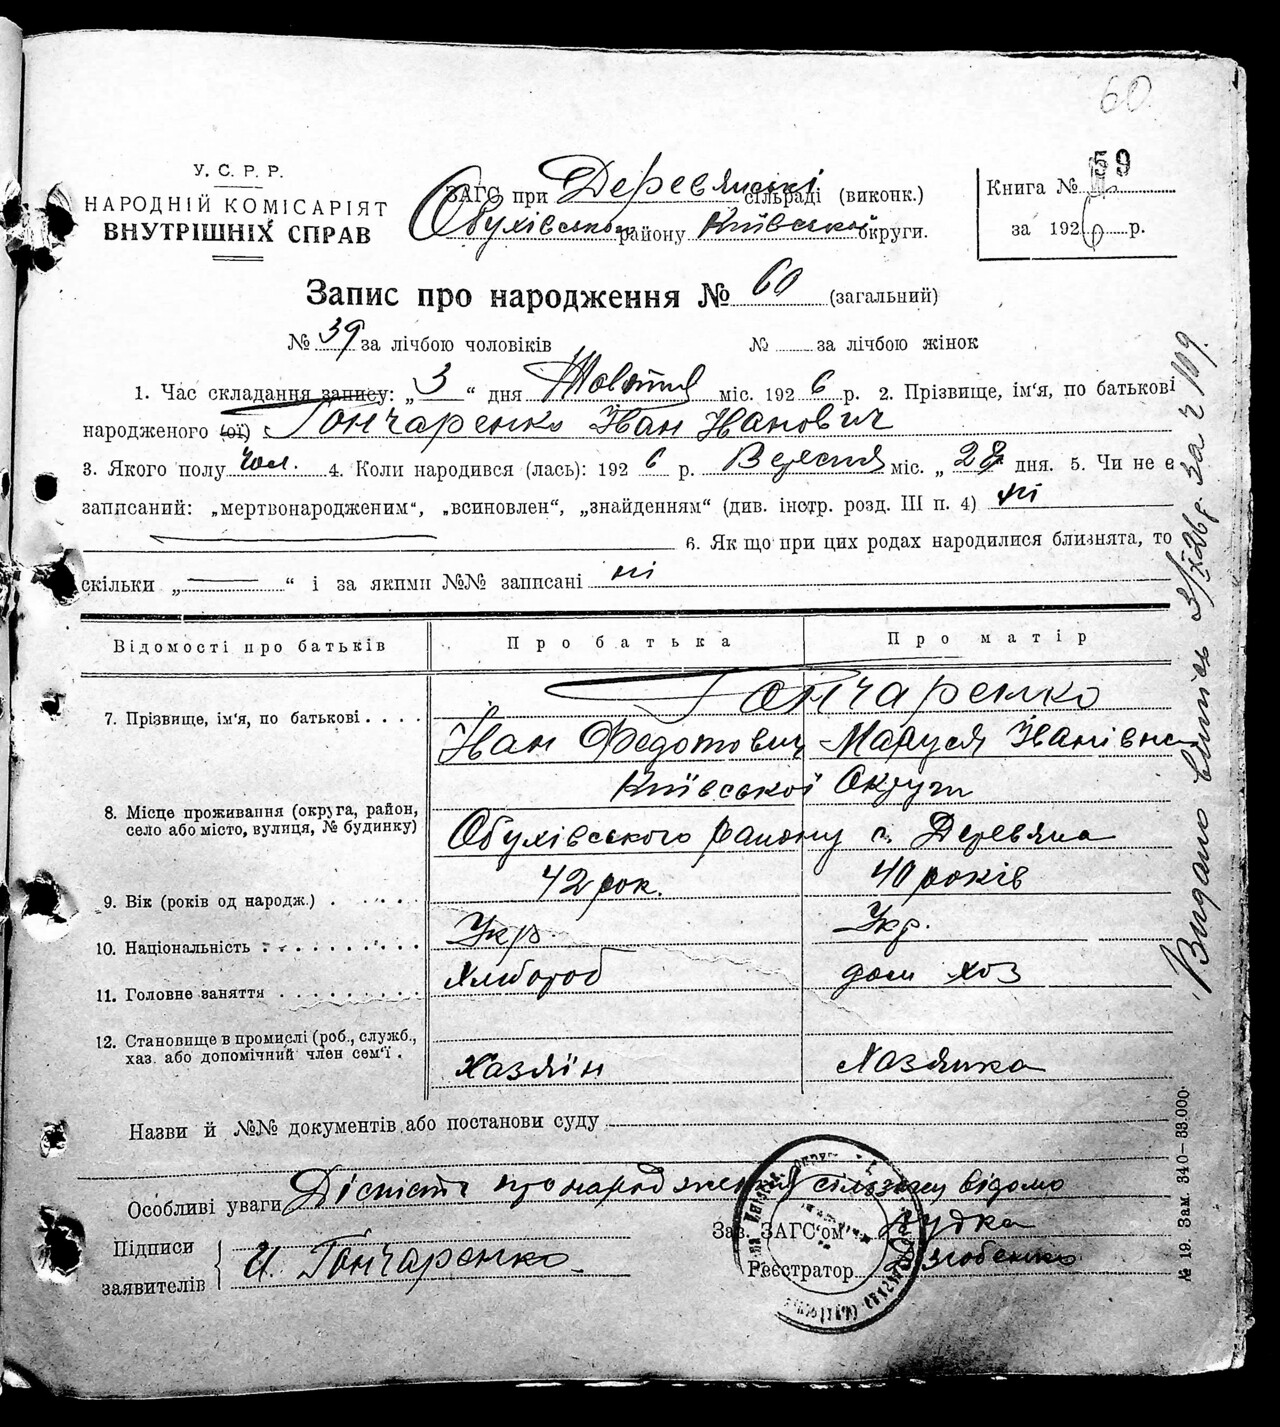 60
У. С. Р. Р.
НАРОДНІЙ КОМІСАРІЯТ
ВНУТРІШНІХ СПРАВ
ЗАГС при Деревянські сільраді (виконк.)
Обухівського району Київської округи.
Книга № 59
за 1926 р.
Запис про народження № 60 (загальний)
№ 39 за лічбою чоловіків № за лічбою жінок
1. Час складання запису: „ 3 “ дня Жовтня міс. 1926 р. 2. Прізвище, ім'я, по батькові
народженого (ої) Гончаренко Іван Іванович
3. Якого полу чол. 4. Коли народився (лась): 1926 р. Вересня міс. „ 28 дня. 5. Чи не є
записаний: „мертвонародженим“, „всиновлен“, „знайденням“ (див. інстр. розд. III п. 4) ні
6. Як що при цих родах народилися близнята, то
скільки „ “ і за якими №№ записані ні
Відомості про батьків Про батька Про матір
Гончаренко
7. Прізвище, ім'я, по батькові . . . .
Іван Федотович Маруся Іванівна
Київської Округи
8. Місце проживання (округа, район,
село або місто, вулиця, № будинку)
Обухівського району с. Деревяна
42 рок. 40 років
9. Вік (років од народж.) . . . . .
Укр. Укр.
10. Національність . . . . . . . . . .
Хлібороб дом хоз
11. Головне заняття . . . . . . . . .
12. Становище в промислі (роб., служб.,
хаз. або допомічний член сем'ї .
Хазяїн Хазяйка
Назви й №№ документів або постанови суду
Особливі уваги Дісність про народження сільраду відомо
Підписи
заявителів
И. Гончаренко
Зав. ЗАГС'ом
Реєстратор
Видано випись 3/X 26 р. за ч 109.
№ 19. Зам. 340—33.000.